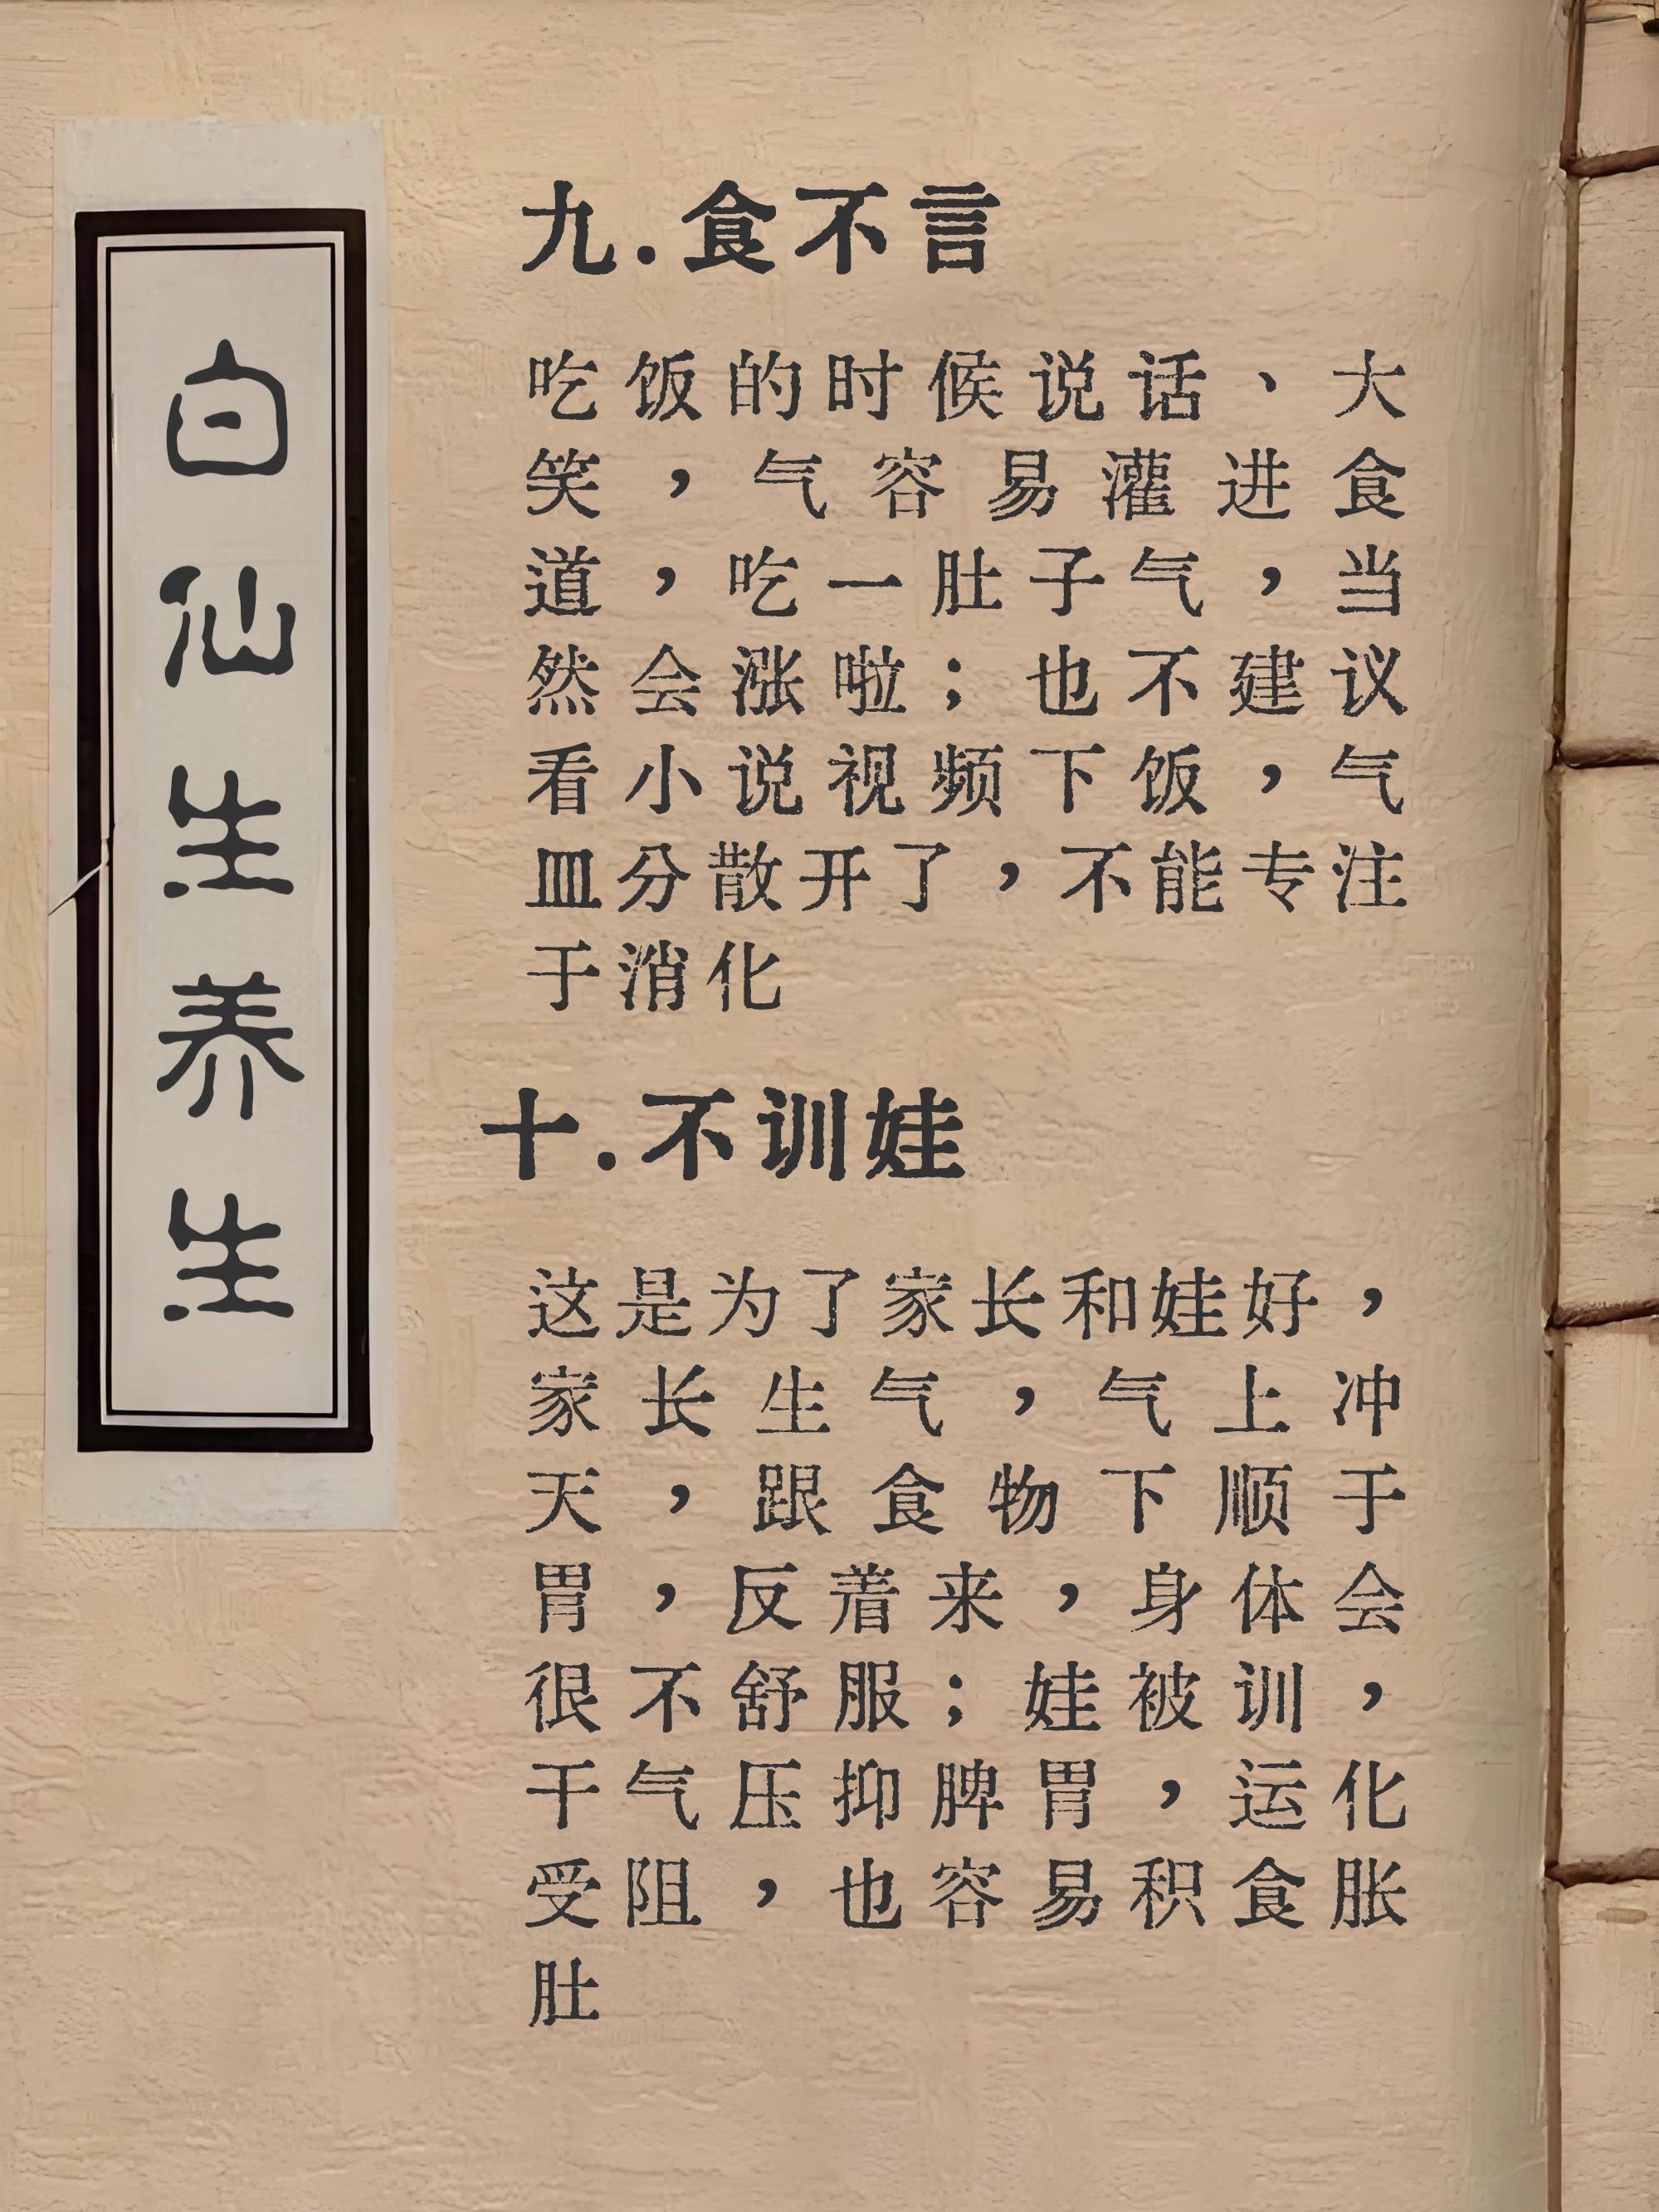 白仙生养生
九.食不言
吃饭的时候说话、大
笑，气容易灌进食
道，吃一肚子气，当
然会涨啦；也不建议
看小说视频下饭，气
皿分散开了，不能专注
于消化
十.不训娃
这是为了家长和娃好，
家长生气，气上冲
天，跟食物下顺于
胃，反着来，身体会
很不舒服；娃被训，
干气压抑脾胃，运化
受阻，也容易积食胀
肚